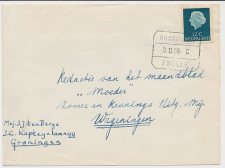 12 C
NEDERLAND
Redactie van het maandblad
„Moeder"
Zomer en Keunings Uitg. Mij.
Wageningen
Mej. J.J. v.d. Berge
J.C. Kapteynlaan
Groningen